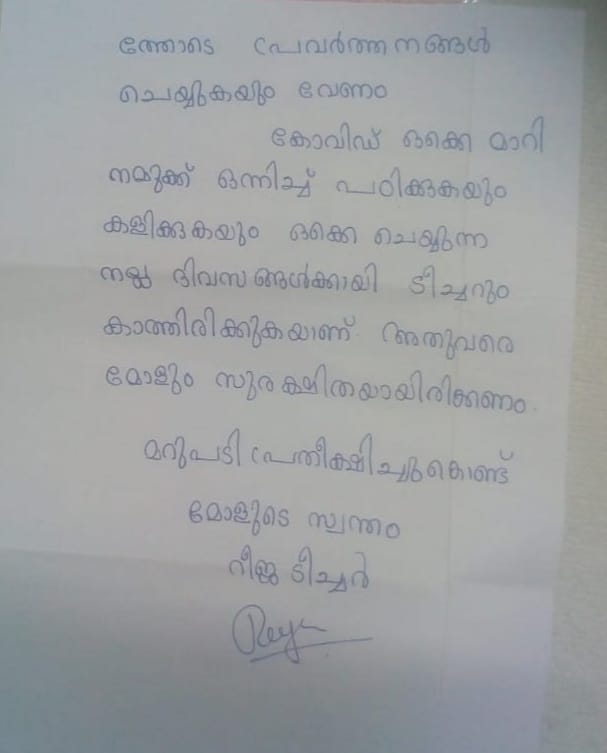 ത്തോടെ പ്രവർത്തനങ്ങൾ
ചെയ്യുകയും വേണം
കോവിഡ് ഒക്കെ മാറി
നമുക്ക് ഒന്നിച്ച് പഠിക്കുകയും
കളിക്കുകയും ഒക്കെ ചെയ്യുന്ന
നല്ല ദിവസങ്ങൾക്കായി ടീച്ചറും
കാത്തിരിക്കുകയാണ്. അതുവരെ
മോളും സുരക്ഷിതയായിരിക്കണം.
മറുപടി പ്രതീക്ഷിച്ചുകൊണ്ട്
മോളുടെ സ്വന്തം
റീജ ടീച്ചർ